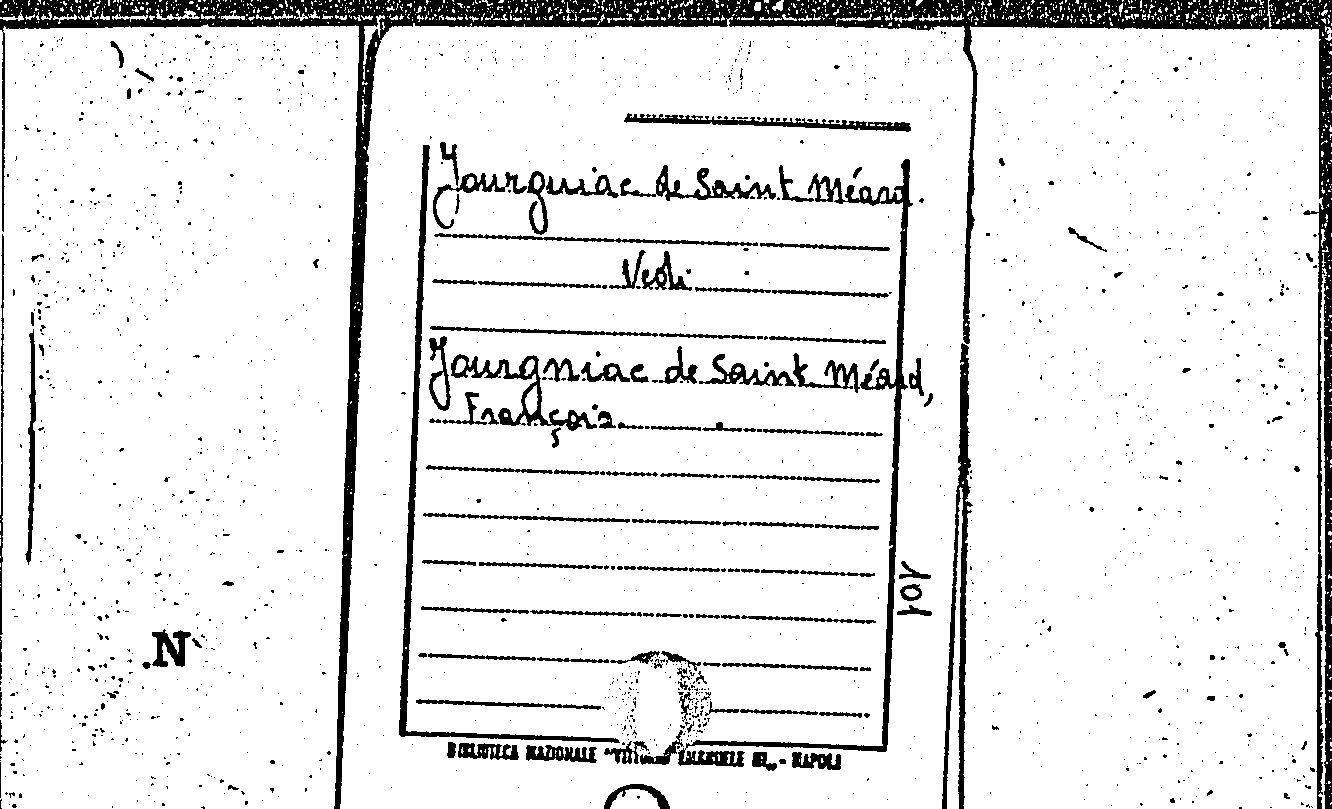 Jourguiac de Saint Méard.
Vedi
Jourgniac de Saint Méard,
François.
101
.N
BIBLIOTECA NAZIONALE "VITTORIO EMANUELE III„ - NAPOLI